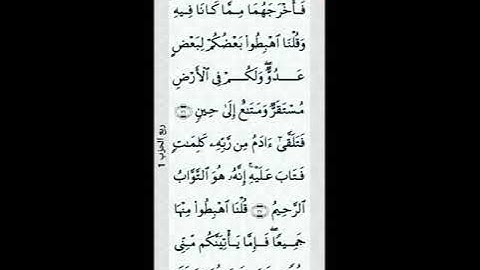 فَأَخْرَجَهُمَا مِمَّا كَانَا فِيهِ
وَقُلْنَا ٱهْبِطُوا۟ بَعْضُكُمْ لِبَعْضٍ
عَدُوٌّ ۖ وَلَكُمْ فِى ٱلْأَرْضِ
مُسْتَقَرٌّ وَمَتَٰعٌ إِلَىٰ حِينٍ
فَتَلَقَّىٰٓ ءَادَمُ مِن رَّبِّهِۦ كَلِمَٰتٍ
فَتَابَ عَلَيْهِ ۚ إِنَّهُۥ هُوَ ٱلتَّوَّابُ
ٱلرَّحِيمُ قُلْنَا ٱهْبِطُوا۟ مِنْهَا
جَمِيعًا ۖ فَإِمَّا يَأْتِيَنَّكُم مِّنِّى
ربع الحزب 1